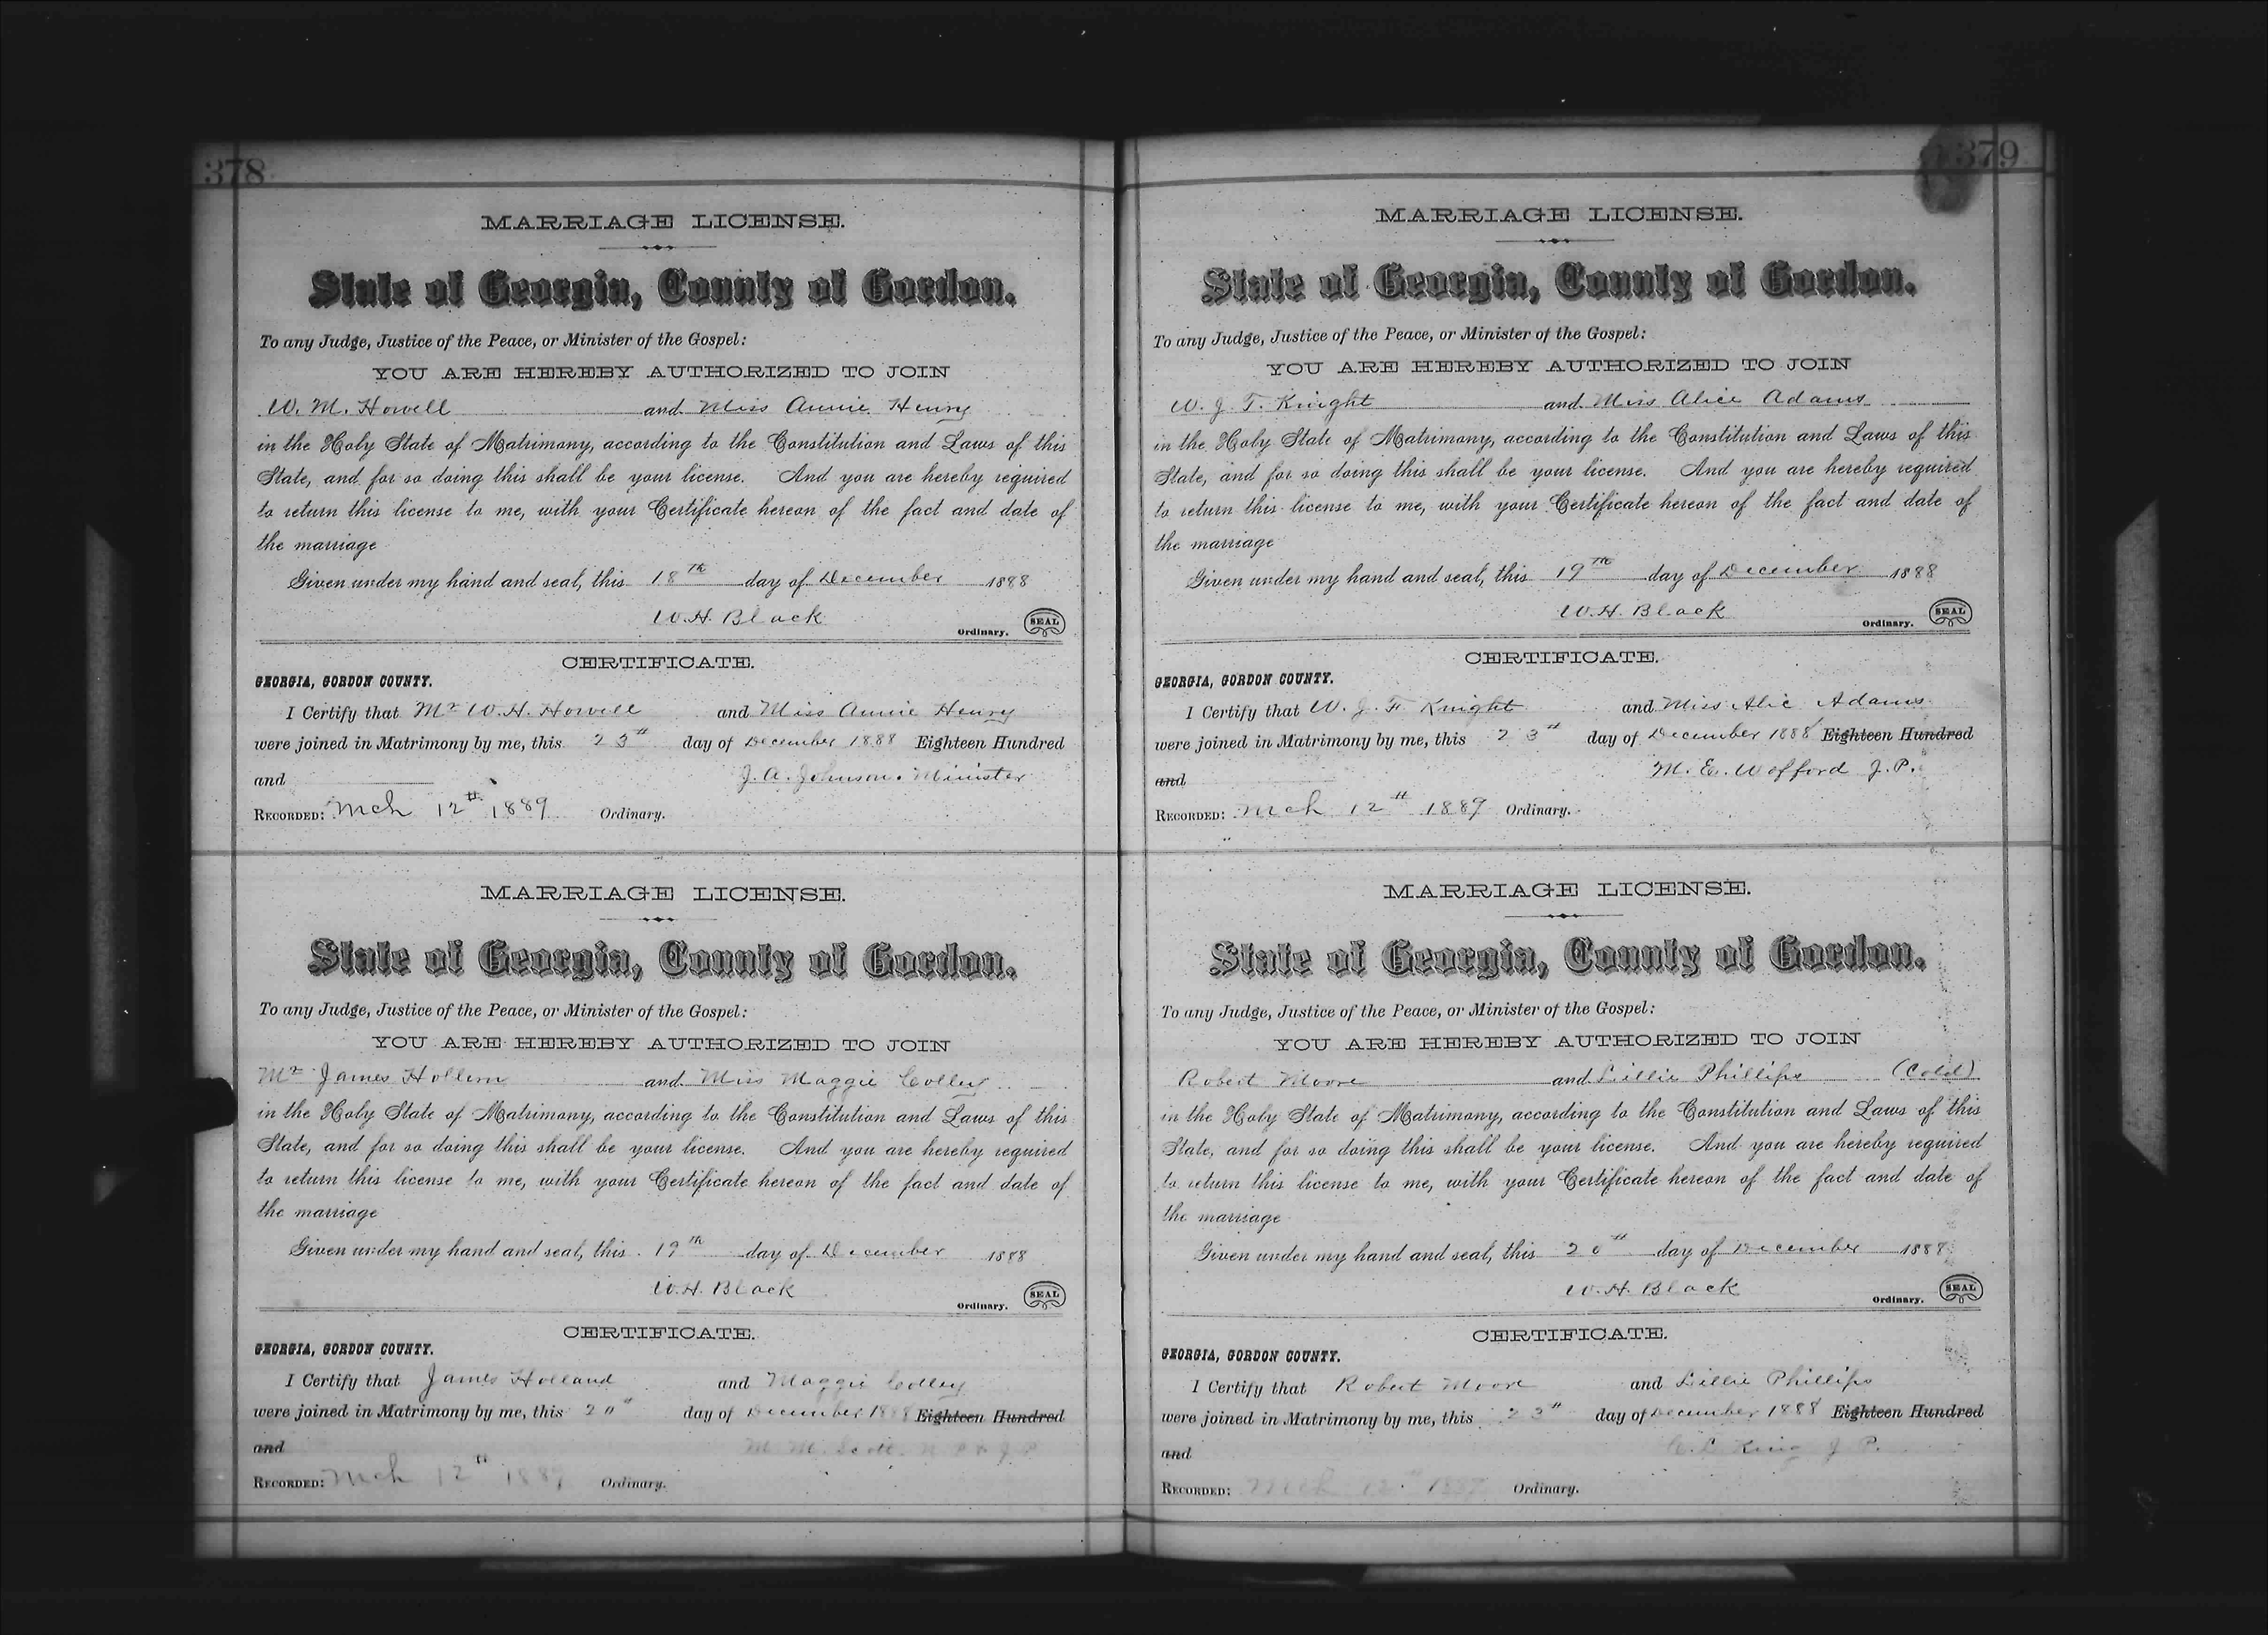 378
MARRIAGE LICENSE.
State of Georgia, County of Gordon.
To any Judge, Justice of the Peace, or Minister of the Gospel:
YOU ARE HEREBY AUTHORIZED TO JOIN
W. M. Howell and Miss Annie Henry
in the Holy State of Matrimony, according to the Constitution and Laws of this
State, and for so doing this shall be your license. And you are hereby required
to return this license to me, with your Certificate hereon of the fact and date of
the marriage
Given under my hand and seal, this 18th day of December 1888
W. H. Black
Ordinary. SEAL
CERTIFICATE.
GEORGIA, GORDON COUNTY.
I Certify that Mr W. H. Howell and Miss Annie Henry
were joined in Matrimony by me, this 23" day of December 1888 Eighteen Hundred
and J. A. Johnson. Minister
RECORDED: Mch 12th 1889 Ordinary.
MARRIAGE LICENSE.
State of Georgia, County of Gordon.
To any Judge, Justice of the Peace, or Minister of the Gospel:
YOU ARE HEREBY AUTHORIZED TO JOIN
Mr James Hollern and Miss Maggie Colley
in the Holy State of Matrimony, according to the Constitution and Laws of this
State, and for so doing this shall be your license. And you are hereby required
to return this license to me, with your Certificate hereon of the fact and date of
the marriage
Given under my hand and seal, this 19th day of December 1888
W. H. Black
Ordinary. SEAL
CERTIFICATE.
GEORGIA, GORDON COUNTY.
I Certify that James Holland and Maggie Colley
were joined in Matrimony by me, this 20" day of December 1888 Eighteen Hundred
and M. M. Scott. N P & J P
RECORDED: Mch 12th 1889 Ordinary.
379
MARRIAGE LICENSE.
State of Georgia, County of Gordon.
To any Judge, Justice of the Peace, or Minister of the Gospel:
YOU ARE HEREBY AUTHORIZED TO JOIN
W. J. F. Knight and Miss Alice Adams
in the Holy State of Matrimony, according to the Constitution and Laws of this
State, and for so doing this shall be your license. And you are hereby required
to return this license to me, with your Certificate hereon of the fact and date of
the marriage
Given under my hand and seal, this 19th day of December 1888
W. H. Black
Ordinary. SEAL
CERTIFICATE.
GEORGIA, GORDON COUNTY.
I Certify that W. J. F. Knight and Miss Alic Adams
were joined in Matrimony by me, this 23" day of December 1888 Eighteen Hundred
and M. E. Wofford J. P.
RECORDED: Mch 12th 1889 Ordinary.
MARRIAGE LICENSE.
State of Georgia, County of Gordon.
To any Judge, Justice of the Peace, or Minister of the Gospel:
YOU ARE HEREBY AUTHORIZED TO JOIN
Robert Moore and Lillie Phillips (Cold)
in the Holy State of Matrimony, according to the Constitution and Laws of this
State, and for so doing this shall be your license. And you are hereby required
to return this license to me, with your Certificate hereon of the fact and date of
the marriage
Given under my hand and seal, this 20th day of December 1888
W. H. Black
Ordinary. SEAL
CERTIFICATE.
GEORGIA, GORDON COUNTY.
I Certify that Robert Moore and Lillie Phillips
were joined in Matrimony by me, this 23" day of December 1888 Eighteen Hundred
and King J P.
RECORDED: Mch 12" 1889 Ordinary.